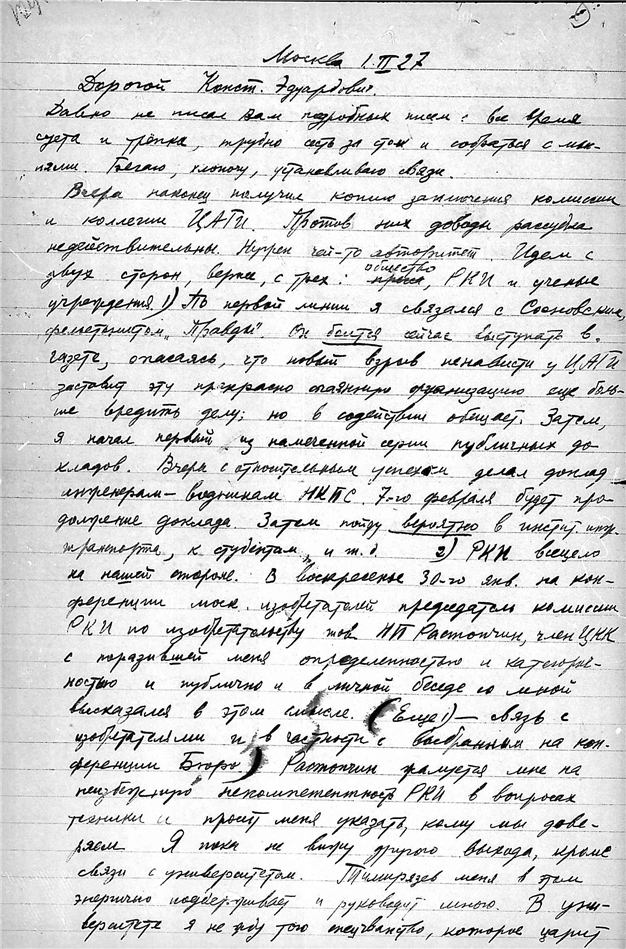 Москва 1.II 27
Дорогой Конст. Эдуардович.
Давно не писал Вам подробных писем: все время
суета и трёпка, трудно сесть за стол и собраться с мыс-
лями. Бегаю, хлопочу, устанавливаю связи.
Вчера наконец получил копию заключения комиссии
и коллегии ЦАГИ. Против них доводы рассудка
недействительны. Нужен чей-то авторитет. Идем с
двух сторон, вернее, с трех: общество, РКИ и ученые
учреждения. 1) По первой линии я связался с Сосновским,
фельетонистом "Правды" Он боится сейчас выступать в
газете, опасаясь, что новый взрыв ненависти у ЦАГИ
заставит эту прекрасно спаянную организацию еще боль-
ше вредить делу; но в содействии обещает. Затем,
я начал первый из намеченной серии публичных до
кладов. Вчера с относительным успехом делал доклад
инженерам-водникам НКПС. 7-го февраля будет про-
должение доклада. Затем пойду вероятно в инстит. инж.
транспорта, к студентам, и т.д. 2) РКИ всецело
на нашей стороне. В воскресенье 30-го янв. на кон-
ференции моск. изобретателей председатель комиссии
РКИ по изобретательству тов НП Растопчин, член ЦКК
с поразившей меня определенностью и категорич-
ностью и публично и в личной беседе со мной
высказался в этом смысле. (Еще 1) — связь с
изобретателями и в частности с выбранным на кон-
ференции Бюро) Растопчин жалуется мне на
неизбежную некомпетентность РКИ в вопросах
техники и просит меня указать, кому мы дове-
ряем Я пока не вижу другого выхода, кроме
связи с университетом. Тимирязев меня в этом
энергично поддерживает и руководит мною. В уни-
верситете я не жду того спецчванства, которое царит